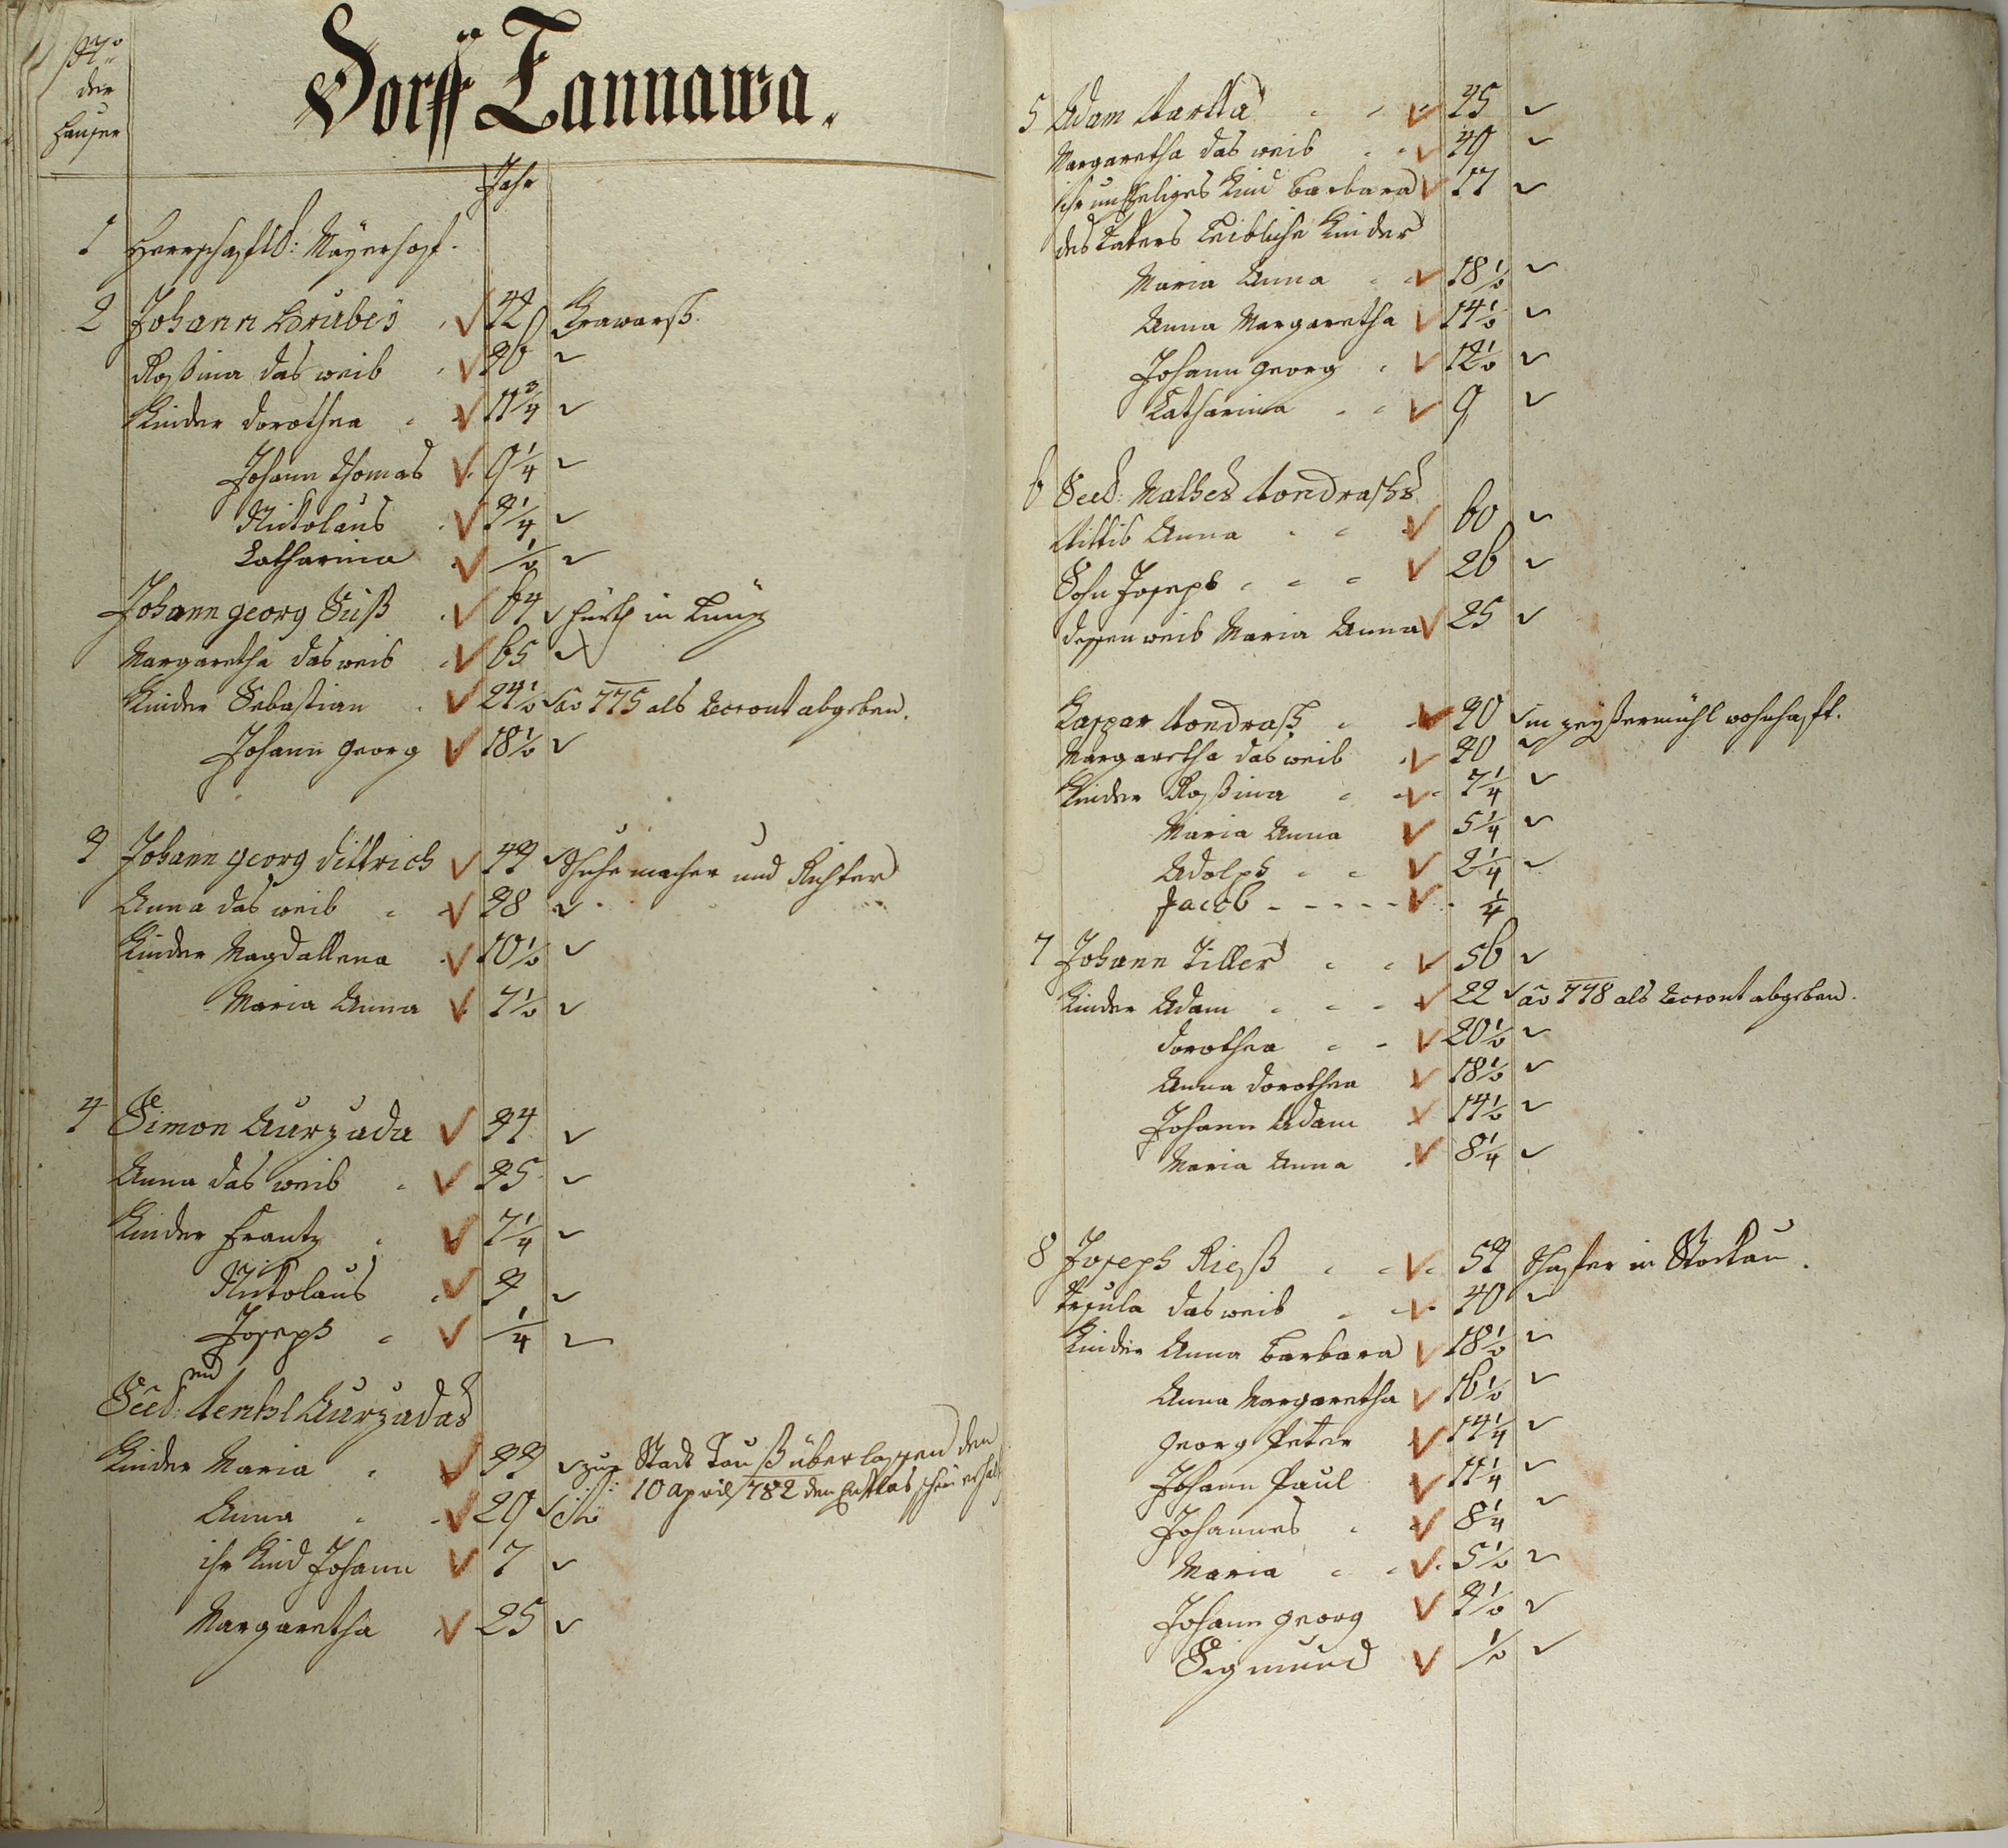 No
der
Häuser
Dorff Tannawa.
Jahr
1 Herrschaftl: Mayerhoff.
2 Johann Hrubey 42
Rossina das weib 36
Kinder Dorothea 11 3/4
Johann Thomas 9 1/4
Nikolaus 3 1/4
Catharina 1/2
Johann Georg Süß 64
Margaretha das weib 65
Kinder Sebastian 24 1/2 ao 775 als Recrout abgeben.
Johann Georg 18 1/2
3 Johann Georg Dittrich 43 Schuhmacher und Richter
Anna das weib 38
Kinder Magdallena 10 1/2
Maria Anna 7 1/2
4 Simon Kurzada 34
Anna das weib 35
Kinder Frantz 7 1/4
Nikolaus 3
Joseph 1/4
Seel: Kurzadas
Kinder Maria 33 zur Stadt Tauß überlassen den
10 April 782 den Entlas schein erhalt
Anna 29
ihr Kind Johann 7
Margaretha 25
5 Adam 45
Margaretha das weib 49
ihr unEheliges Kind Barbara 17
des Vaters Leibliche Kinder
Maria Anna 18 1/2
Anna Margaretha 14 1/2
Johann Georg 12 1/2
Catharina 9
6 Seel: Mathes Wondraschs
Wittib Anna 60
Sohn Joseph 26
dessen weib Maria Anna 25
Caspar Wondrasch 40 wohnhafft.
Margaretha das weib 40
Kinder Rossina 7 1/4
Maria Anna 5 1/4
Adolph 2 1/4
Jacob 1/4
7 Johann Tiller 56
Kinder Adam 22 ao 778 als Recrout abgeben.
Dorothea 20 1/2
Anna Dorothea 18 1/2
Johann Adam 14 1/2
Maria Anna 8 1/4
8 Joseph Rieß 52 Schaffer in Stockau.
Ursula das weib 40
Kinder Anna Barbara 18 1/2
Anna Margaretha 16 1/2
Georg Peter 14 1/4
Johann Paul 11 1/4
Johannes 8 1/4
Maria 5 1/2
Johann Georg 3 1/2
Sigmund 1/2